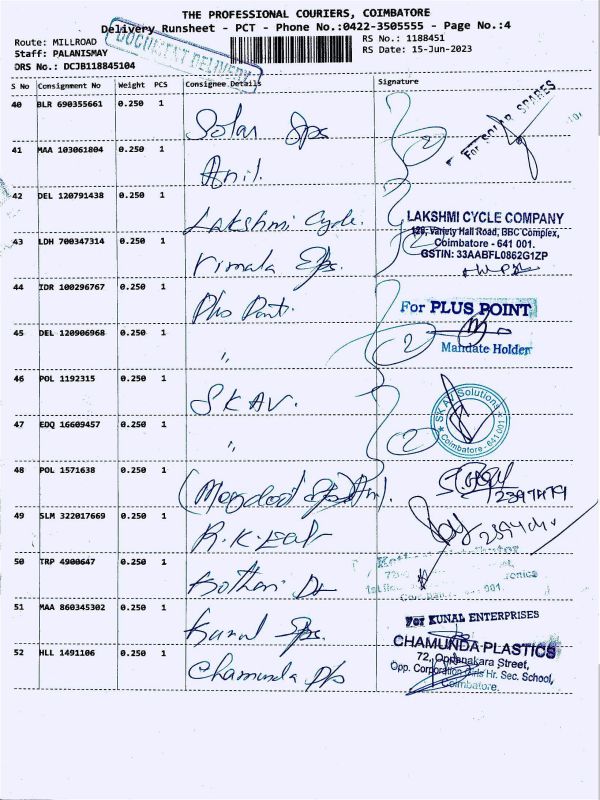 THE PROFESSIONAL COURIERS, COIMBATORE
Delivery Runsheet - PCT - Phone No.:0422-3505555 - Page No.:4
Route: MILLROAD
RS No.: 1188451
Staff: PALANISMAY
RS Date: 15-Jun-2023
DRS No.: DCJB118845104
DOCUMENT DELIVERY
S No Consignment No Weight PCS Consignee Details Signature
40 BLR 690355661 0.250 1 Solar Sps
For SOLAR SPARES
41 MAA 103061804 0.250 1 Anil.
42 DEL 120791438 0.250 1 Lakshmi Cycle.
LAKSHMI CYCLE COMPANY
Variety Hall Road, BBC Complex,
Coimbatore - 641 001.
GSTIN: 33AABFL0862G1ZP
43 LDH 700347314 0.250 1 Vimala Sps.
44 IDR 100296767 0.250 1 Pls Point.
For PLUS POINT
2
Mandate Holder
45 DEL 120906968 0.250 1 "
46 POL 1192315 0.250 1 SKAV.
SK AV Solutions
Coimbatore - 641 001
47 EDQ 16609457 0.250 1 "
2
48 POL 1571638 0.250 1
49 SLM 322017669 0.250 1 R.K.
50 TRP 4900647 0.250 1 Kothari
51 MAA 860345302 0.250 1 Kunal Sps.
For KUNAL ENTERPRISES
52 HLL 1491106 0.250 1 Chamunda Pls
CHAMUNDA PLASTICS
72, Oppanakara Street,
Opp. Corporation Girls Hr. Sec. School,
Coimbatore.